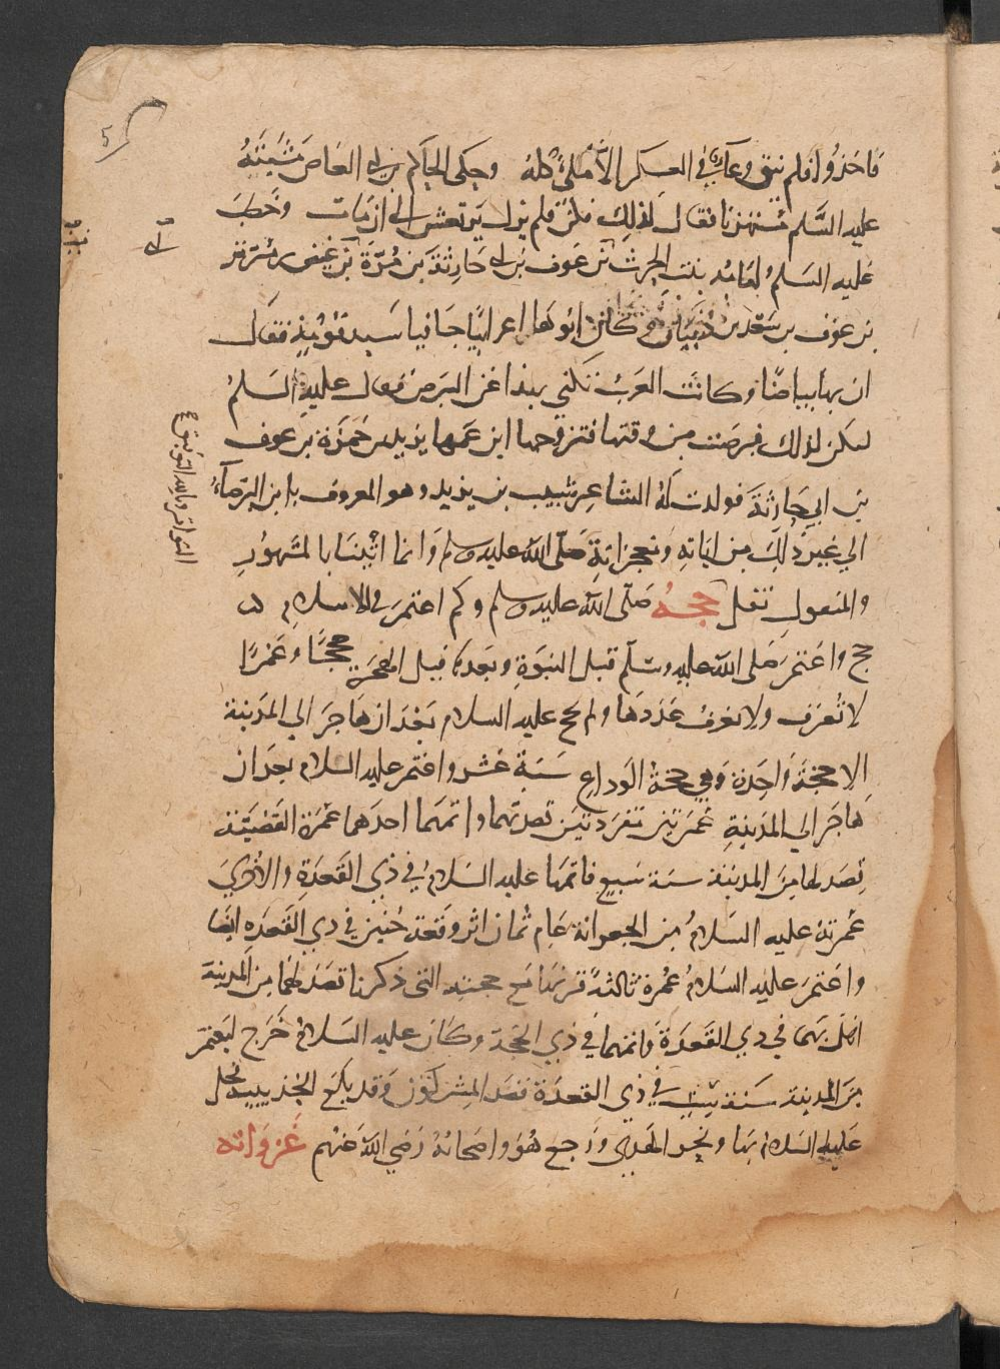 فاخذوا فلم يبق وعاء في العسكر الا ملئ كله وحكى الحاكم بن ابي العاص مشيته
عليه السلم مستهزئا فقال كذلك فكن فلم يزل يرتعش الى ان مات وخطب
عليه السلم امامة بنت الحرث بن عوف بن ابي حارثة بن مرة بن
بن عوف بن سعد بن ذبيان وكان ابوها اعرابيا جافيا سيد قومه فقال
ان بها بياضا وكانت العرب تكني بهذا عن البرص فقال عليه السلم
لتكن كذلك فبرصت من وقتها فتزوجها ابن عمها يزيد بن حمزة بن عوف
بن ابي حارثة فولدت له الشاعر شبيب بن يزيد وهو المعروف بابن البرصاء
الي غير ذلك من اياته ومعجزاته صلى الله عليه وسلم وانما اتينا بالمشهور
والمنقول نقل
التواتر وبالله التوفيق
حجه صلى الله عليه وسلم وكم اعتمر في الاسلام
حج واعتمر صلى الله عليه وسلم قبل النبوة وبعدها قبل الهجرة حججا وعمرا
لا تعرف ولا يعرف عددها ولم يحج عليه السلام بعد ان هاجر الي المدينة
الا حجة واحدة وهي حجة الوداع سنة عشر واعتمر عليه السلام بعد ان
هاجر الي المدينة عمرتين مفردتين قصدتهما واتمهما احدهما عمرة القضية
قصد لها من المدينة سنة سبع فاتمها عليه السلام في ذي القعدة والاخري
عمرته عليه السلام من الجعرانة عام ثمان اثر وقعة حنين في ذي القعدة ايضا
واعتمر عليه السلام عمرة ثالثة قرنها مع حجته التي ذكرنا قصد لهما من المدينة
اهل بهما في ذي القعدة فاتمهما في ذي الحجة وكان عليه السلام خرج ليعتمر
من المدينة سنة ست في ذي القعدة فصد المشركون وقد بلغ الحديبية فحل
عليه السلام بها ونحر الهدي ورجع هو واصحابه رضي الله عنهم غزواته